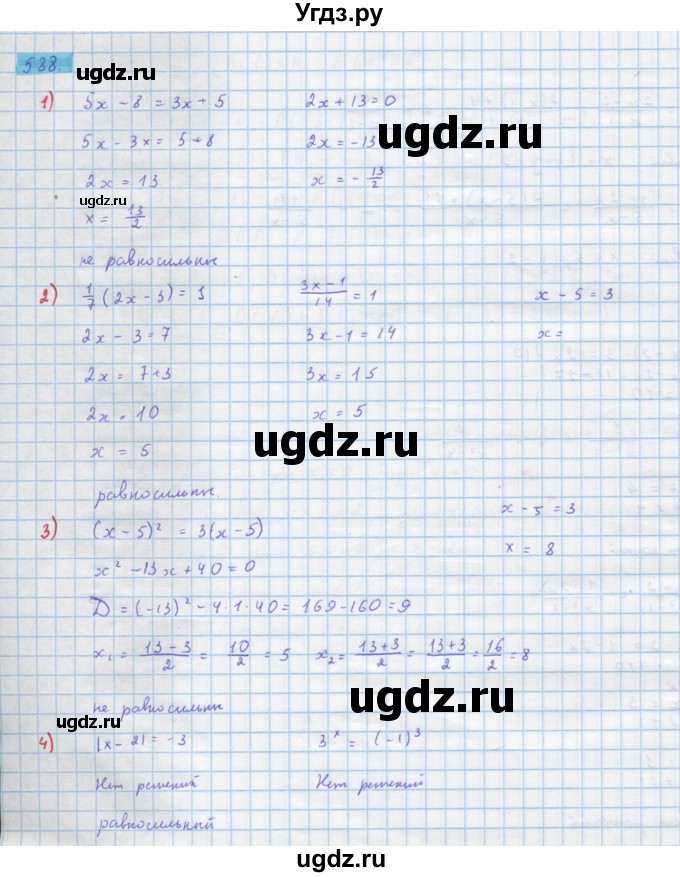 Угдз.ру
588.
ugdz.ru
1) 5x - 8 = 3x + 5
2x + 13 = 0
ugdz.ru
5x - 3x = 5 + 8
2x = -13
2x = 13
x = - 13/2
ugdz.ru
x = 13/2
не равносильны
2) 1/7 (2x - 3) = 1
(3x - 1)/14 = 1
x - 5 = 3
2x - 3 = 7
3x - 1 = 14
x =
2x = 7 + 3
3x = 15
2x = 10
x = 5
ugdz.ru
x = 5
равносильны.
3) (x - 5)² = 3(x - 5)
x - 5 = 3
x² - 13x + 40 = 0
x = 8
D = (-13)² - 4·1·40 = 169 - 160 = 9
x₁ = (13 - 3)/2 = 10/2 = 5
x₂ = (13 + 3)/2 = (13 + 3)/2 = 16/2 = 8
ugdz.ru
не равносильны
ugdz.ru
4) |x - 2| = -3
3ˣ = (-1)³
Нет решений
Нет решений
равносильный
ugdz.ru